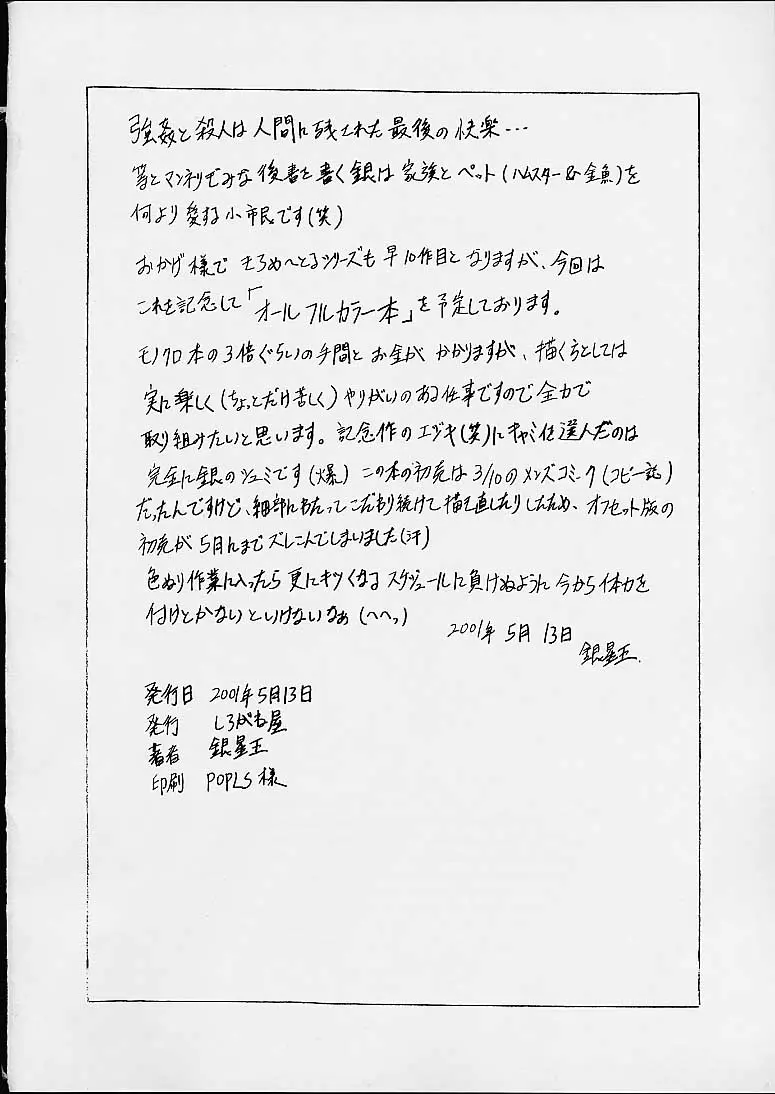 強姦と殺人は人間に残された最後の快楽…
等とマンネリでみな後書を書く銀は家族とペット(ハムスター&金魚)を
何より愛する小市民です(笑)
おかげ様でもろめへとるシリーズも早10作目となりますが、今回は
これを記念して「オールフルカラー本」を予定しております。
モノクロ本の3倍ぐらいの手間とお金がかかりますが、描く方としては
実に楽しく(ちょっとだけ苦しく)やりがいのある仕事ですので全力で
取り組みたいと思います。記念作のエジキ(笑)にキャミィを選んだのは
完全に銀のシュミです(爆) この本の初売は3/10のメンズコミーク(コピー誌)
だったんですけど、細部にわたってこだわり続けて描き直したりしたため、オフセット版の
初売が5月にまでズレこんでしまいました(汗)
色ぬり作業に入ったら更にキツくなるスケジュールに負けぬように今から体力を
付けとかないといけないなぁ(へへっ)
2001年5月13日
銀星王.
発行日 2001年5月13日
発行 しろがね屋
著者 銀星王
印刷 POPLS様